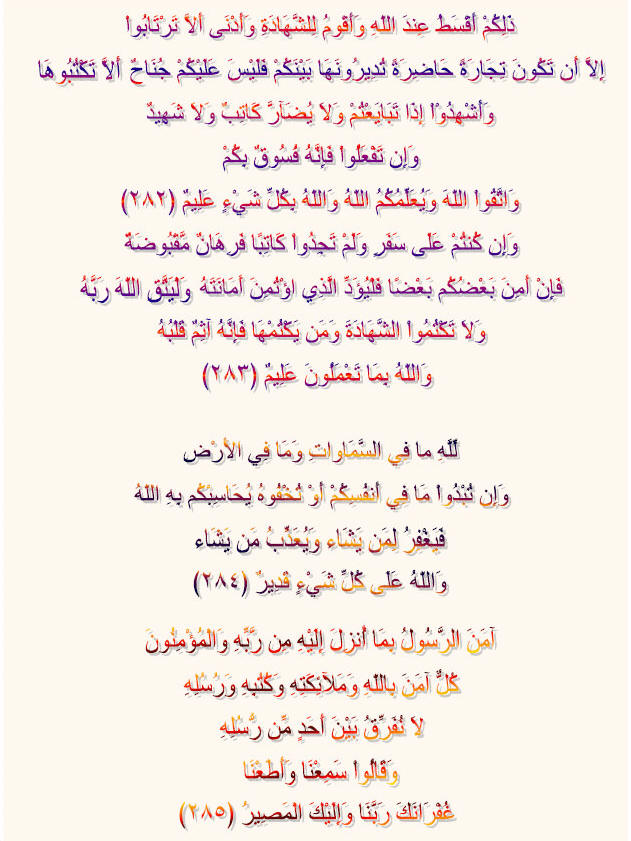 ذَلِكُمْ أَقْسَطُ عِندَ اللّهِ وَأَقْومُ لِلشَّهَادَةِ وَأَدْنَى أَلاَّ تَرْتَابُواْ
إِلاَّ أَن تَكُونَ تِجَارَةً حَاضِرَةً تُدِيرُونَهَا بَيْنَكُمْ فَلَيْسَ عَلَيْكُمْ جُنَاحٌ أَلاَّ تَكْتُبُوهَا
وَأَشْهِدُوْاْ إِذَا تَبَايَعْتُمْ وَلاَ يُضَآرَّ كَاتِبٌ وَلاَ شَهِيدٌ
وَإِن تَفْعَلُواْ فَإِنَّهُ فُسُوقٌ بِكُمْ
وَاتَّقُواْ اللّهَ وَيُعَلِّمُكُمُ اللّهُ وَاللّهُ بِكُلِّ شَيْءٍ عَلِيمٌ (٢٨٢)
وَإِن كُنتُمْ عَلَى سَفَرٍ وَلَمْ تَجِدُواْ كَاتِبًا فَرِهَانٌ مَّقْبُوضَةٌ
فَإِنْ أَمِنَ بَعْضُكُم بَعْضًا فَلْيُؤَدِّ الَّذِي اؤْتُمِنَ أَمَانَتَهُ وَلْيَتَّقِ اللّهَ رَبَّهُ
وَلاَ تَكْتُمُواْ الشَّهَادَةَ وَمَن يَكْتُمْهَا فَإِنَّهُ آثِمٌ قَلْبُهُ
وَاللّهُ بِمَا تَعْمَلُونَ عَلِيمٌ (٢٨٣)
لِّلَّهِ ما فِي السَّمَاواتِ وَمَا فِي الأَرْضِ
وَإِن تُبْدُواْ مَا فِي أَنفُسِكُمْ أَوْ تُخْفُوهُ يُحَاسِبْكُم بِهِ اللّهُ
فَيَغْفِرُ لِمَن يَشَاء وَيُعَذِّبُ مَن يَشَاء
وَاللّهُ عَلَى كُلِّ شَيْءٍ قَدِيرٌ (٢٨٤)
آمَنَ الرَّسُولُ بِمَا أُنزِلَ إِلَيْهِ مِن رَّبِّهِ وَالْمُؤْمِنُونَ
كُلٌّ آمَنَ بِاللّهِ وَمَلآئِكَتِهِ وَكُتُبِهِ وَرُسُلِهِ
لاَ نُفَرِّقُ بَيْنَ أَحَدٍ مِّن رُّسُلِهِ
وَقَالُواْ سَمِعْنَا وَأَطَعْنَا
غُفْرَانَكَ رَبَّنَا وَإِلَيْكَ الْمَصِيرُ (٢٨٥)